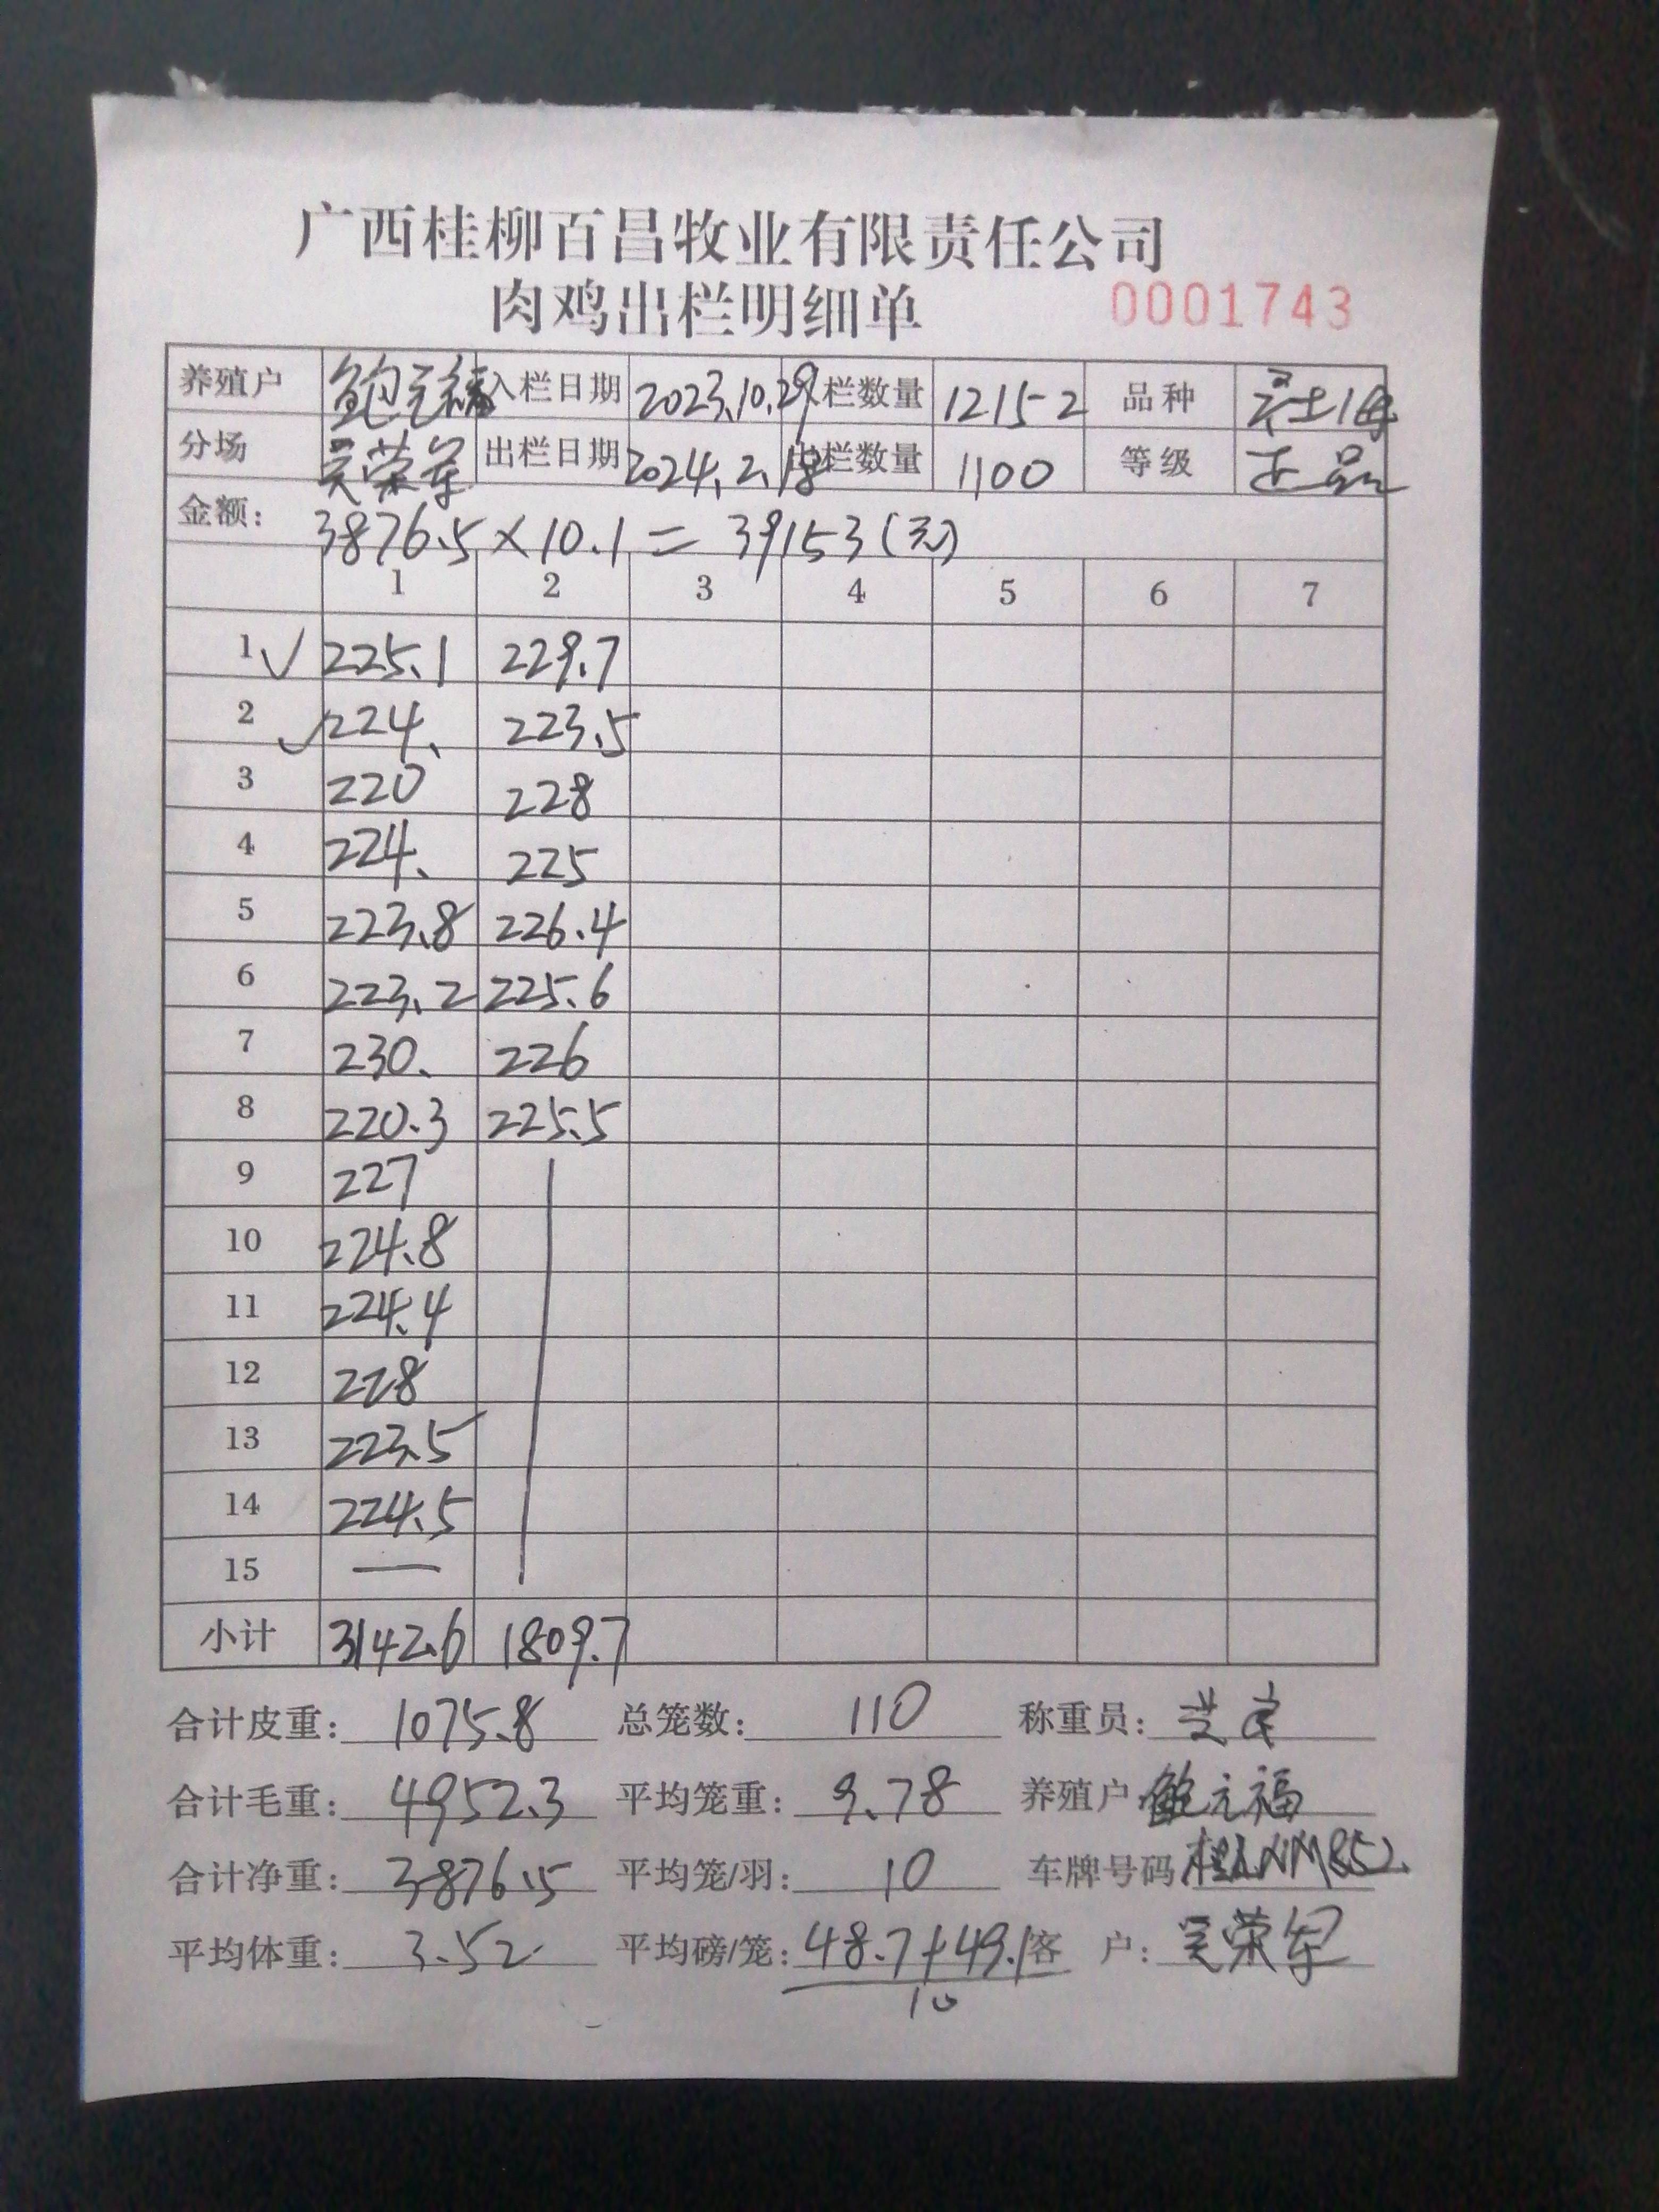 广西桂柳百昌牧业有限责任公司
肉鸡出栏明细单 0001743
养殖户 鲍元福 入栏日期 2023.10.29 栏数量 12152 品种 土
分场 吴荣军 出栏日期 2024.2.18 出栏数量 1100 等级 正品
金额: 3876.5×10.1=39153(元)
1 2 3 4 5 6 7
1 ✓ 225.1 229.7
2 ✓ 224. 223.5
3 220 228
4 224. 225
5 223.8 226.4
6 223.2 225.6
7 230. 226
8 220.3 225.5
9 227
10 224.8
11 224.4
12 228
13 223.5
14 224.5
15 —
小计 3142.6 1809.7
合计皮重: 1075.8 总笼数: 110 称重员:
合计毛重: 4952.3 平均笼重: 9.78 养殖户: 鲍元福
合计净重: 3876.5 平均笼/羽: 10 车牌号码
平均体重: 3.52 平均磅/笼: 48.7+49.1 客 户: 吴荣军
10